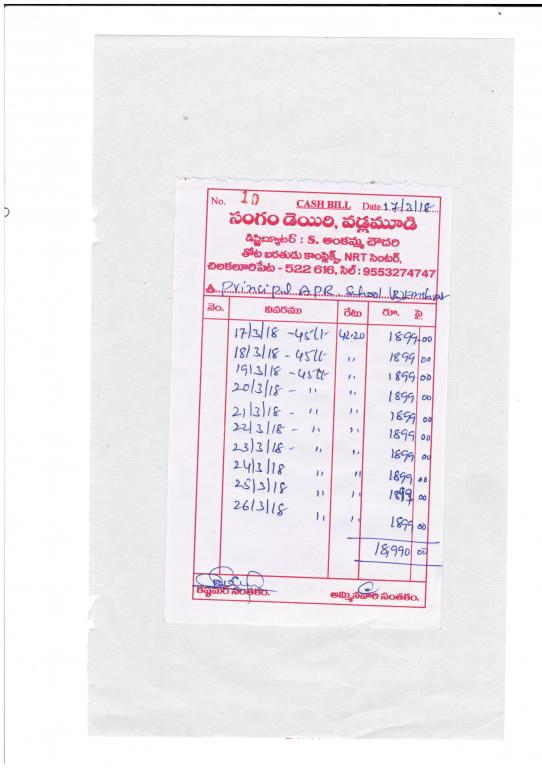 No. 10 CASH BILL Date 17/3/18
సంగం డెయిరి, వడ్లమూడి
డిస్ట్రిబ్యూటర్ : S. అంకమ్మ చౌదరి
తోట బరతుడు కాంప్లెక్స్, NRT సెంటర్,
చిలకలూరిపేట - 522 616, సెల్ : 9553274747
శ్రీ Principal APR School
నెం. వివరము రేటు రూ. పై
17/3/18 - 45 Lt 42.20 1899-00
18/3/18 - 45 Lt " 1899 00
19/3/18 - 45 Lt " 1899 00
20/3/18 - " " 1899 00
21/3/18 - " " 1899 00
22/3/18 - " " 1899 00
23/3/18 - " " 1899 00
24/3/18 " " 1899 00
25/3/18 " " 1899 00
26/3/18 " " 1899 00
18,990 00
కస్టమర్ సంతకం. అమ్మినవారి సంతకం.